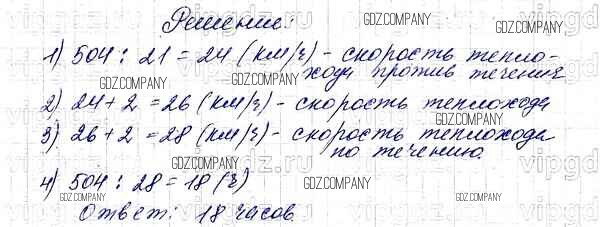 Решение:
1) 504 : 21 = 24 (км/ч) - скорость тепло-
хода против течения
2) 24 + 2 = 26 (км/ч) - скорость теплохода
3) 26 + 2 = 28 (км/ч) - скорость теплохода
по течению.
4) 504 : 28 = 18 (ч)
Ответ: 18 часов
GDZ.COMPANY
GDZ.COMPANY
GDZ.COMPANY
GDZ.COMPANY
GDZ.COMPANY
GDZ.COMPANY
GDZ.COMPANY
GDZ.COMPANY
GDZ.COMPANY